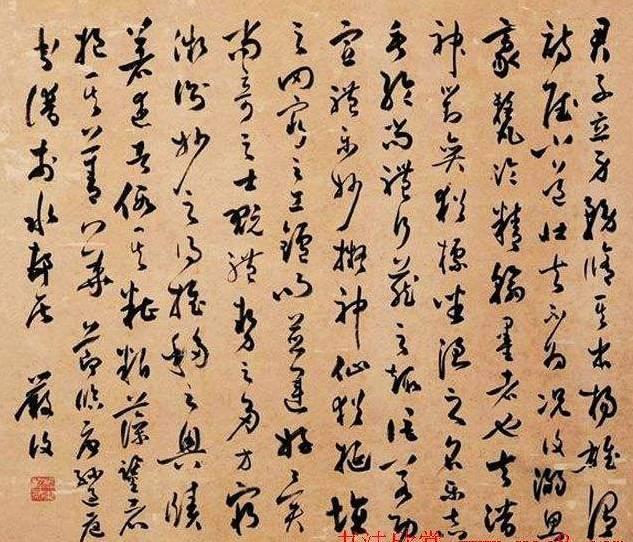 君子立身務脩其本揚雄謂
詩賦小道壯夫不為況復溺思
豪氂淪精翰墨者也夫潛
神對奕猶標坐隱之名樂志
垂綸尚體行藏之趣詎若功
宣禮樂妙擬神仙猶埏埴
之罔窮与工鑪而並運好異
尚奇之士翫體勢之多方窮
微測妙之夫得推移之奧賾
著述者假其糟粕藻鑒者
挹其菁華節臨唐孫過庭
書譜於
嚴
书法欣赏